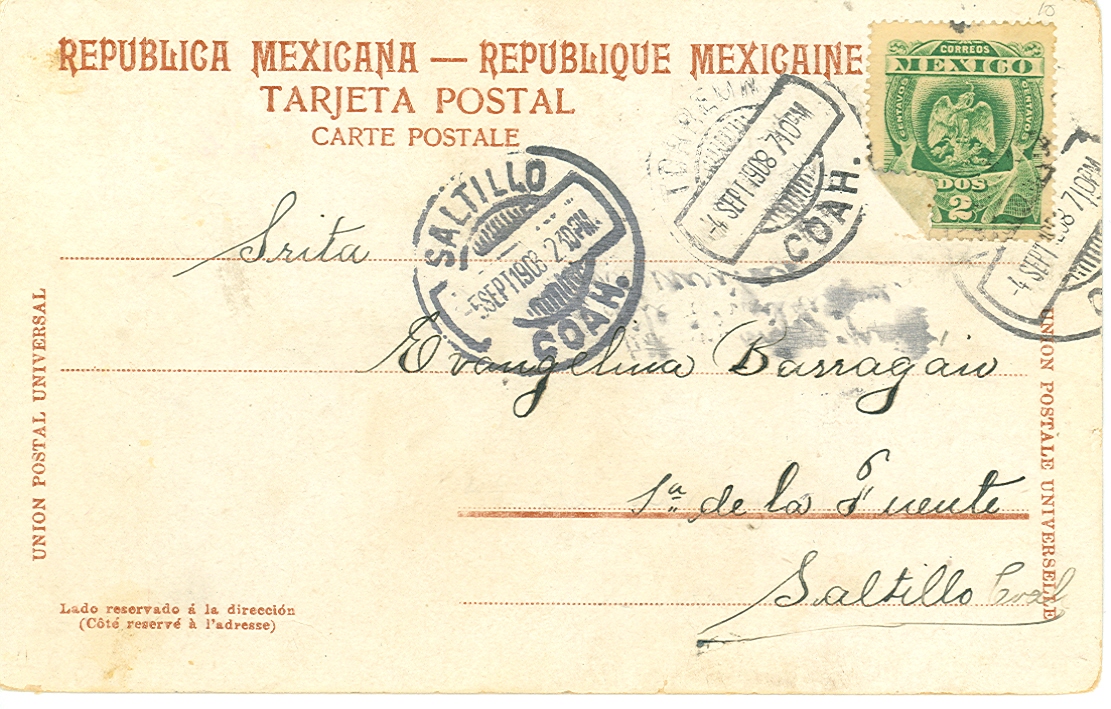 REPUBLICA MEXICANA — REPUBLIQUE MEXICAINE
TARJETA POSTAL
CARTE POSTALE
CORREOS
MEXICO
CENTAVOS
CENTAVOS
DOS
2
COAH.
-4 SEPT 1908 710PM
-4 SEPT 1908 710PM
SALTILLO
-5 SEPT 1908 230PM.
COAH.
Srita
Evangelina Barragán
1ª de la Fuente
Saltillo Coah
UNION POSTAL UNIVERSAL
UNION POSTALE UNIVERSELLE
Lado reservado á la dirección
(Côté reservé à l'adresse)